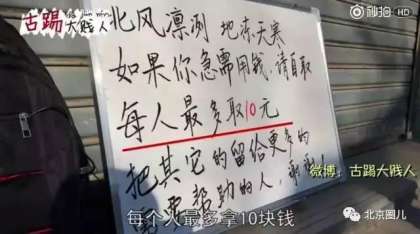 古踢
大贱人
秒拍
北风凛冽 地冻天寒
如果你急需用钱,请自取
每人最多取10元
把其它的留给更多的
需要帮助的人,谢谢!
微博:古踢大贱人
每个人最多拿10块钱
北京圈儿